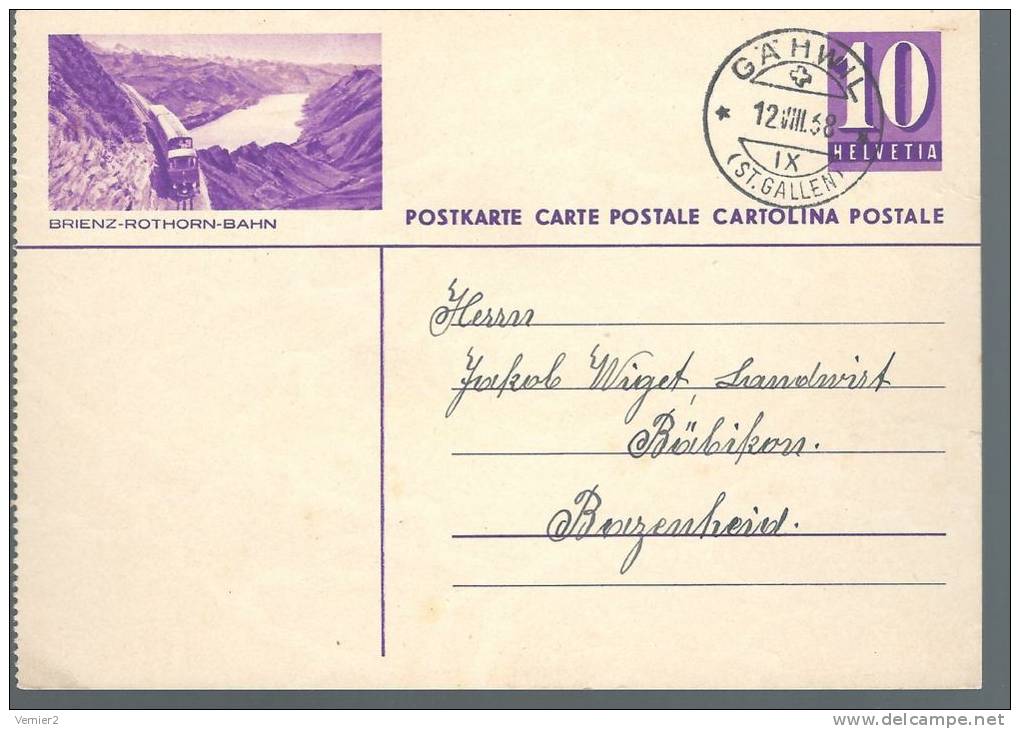 GÄHWIL
12.VIII.38
IX
(ST. GALLEN)
10
HELVETIA
BRIENZ-ROTHORN-BAHN
POSTKARTE CARTE POSTALE CARTOLINA POSTALE
Herrn
Jakob Wiget, Landwirt
Bäbikon.
Bazenheid.
Vernier2
www.delcampe.net